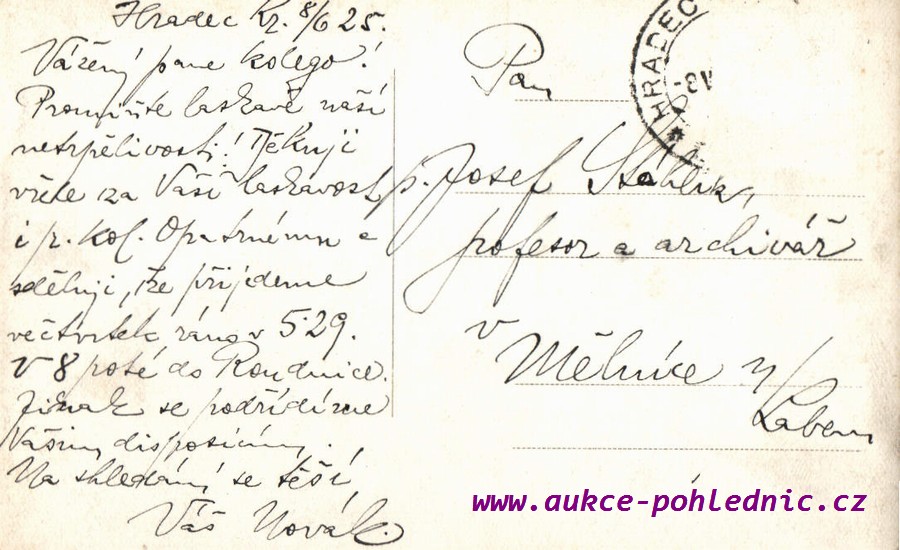 Hradec Kr. 8/6 25.
Vážený pane kolego!
Promiňte laskavě naší
netrpělivosti! Děkuji
vřele za Vaši laskavost
i p. kol. Opatrnému a
sděluji, že přijdeme
ve čtvrtek ráno v 5·29.
V 8 poté do Roudnice.
Jinak se podřídíme
Vašim disposicím.
Na shledanou se těší
Váš Novák
Pan
p. Josef Stáhlík,
profesor a archivář
v Mělníce n/
Labem
HRADEC
-8 V
www.aukce-pohlednic.cz